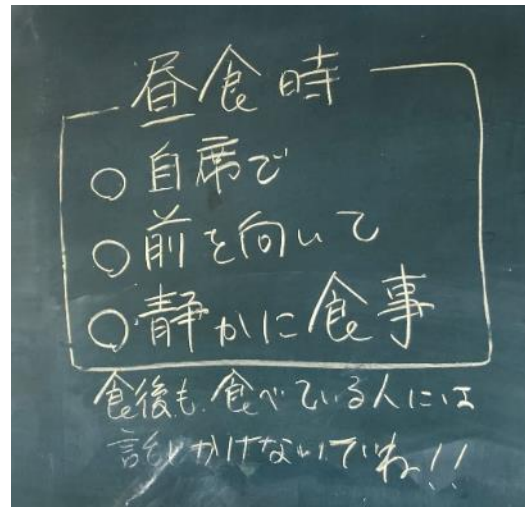 昼食時
○自席で
○前を向いて
○静かに食事
食後も、食べている人には
話しかけないでね!!